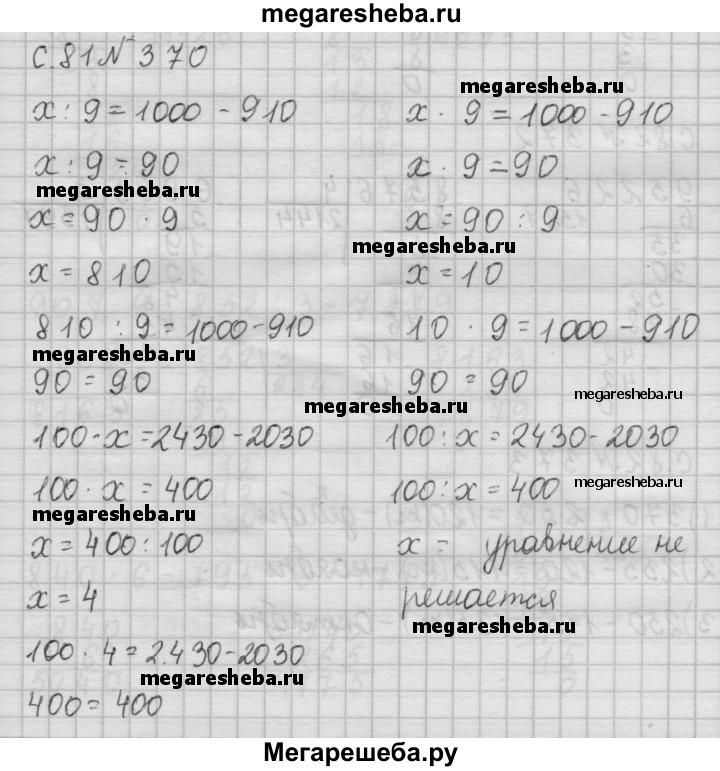 megaresheba.ru
с.81 № 370
x : 9 = 1000 - 910
x : 9 = 90
megaresheba.ru
x = 90 · 9
x = 810
810 : 9 = 1000 - 910
megaresheba.ru
90 = 90
megaresheba.ru
x · 9 = 1000 - 910
x · 9 = 90
x = 90 : 9
megaresheba.ru
x = 10
10 · 9 = 1000 - 910
90 = 90
megaresheba.ru
megaresheba.ru
100 · x = 2430 - 2030
100 · x = 400
megaresheba.ru
x = 400 : 100
x = 4
100 · 4 = 2430 - 2030
megaresheba.ru
400 = 400
100 : x = 2430 - 2030
100 : x = 400
megaresheba.ru
x = уравнение не
решается
megaresheba.ru
Мегарешеба.ру